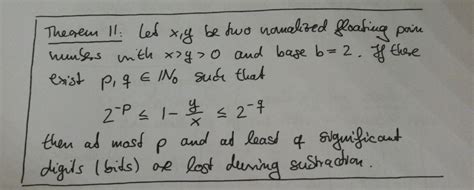 Theorem 11: Let x,y be two normalized floating poin
numbers with x>y>0 and base b=2. If there
exist p,q ∈ ℕ₀ such that
2^{-p} ≤ 1 - y/x ≤ 2^{-q}
then at most p and at least q significant
digits (bits) are lost during substraction.